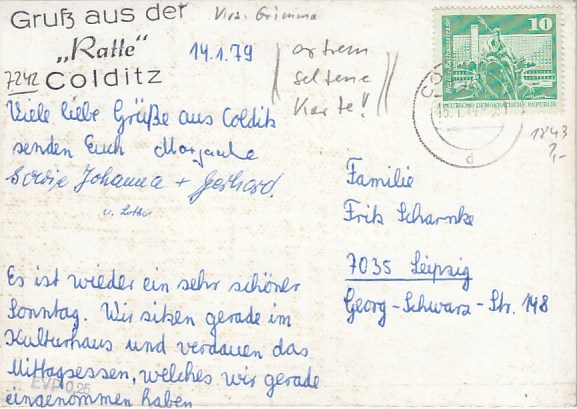 Gruß aus der
Krs. Grimma
„Ratte"
7242 Colditz
14.1.79
extrem
seltene
Karte!!
10
DEUTSCHE DEMOKRATISCHE REPUBLIK
1843
Viele liebe Grüße aus Colditz
senden Euch
sowie Johanna + Gerhard.
u. Lothar
Familie
Fritz Scharnke
7035 Leipzig
Georg-Schwarz-Str. 148
Es ist wieder ein sehr schöner
Sonntag. Wir sitzen gerade im
Kulturhaus und verdauen das
Mittagsessen, welches wir gerade
eingenommen haben
EVP 0,25